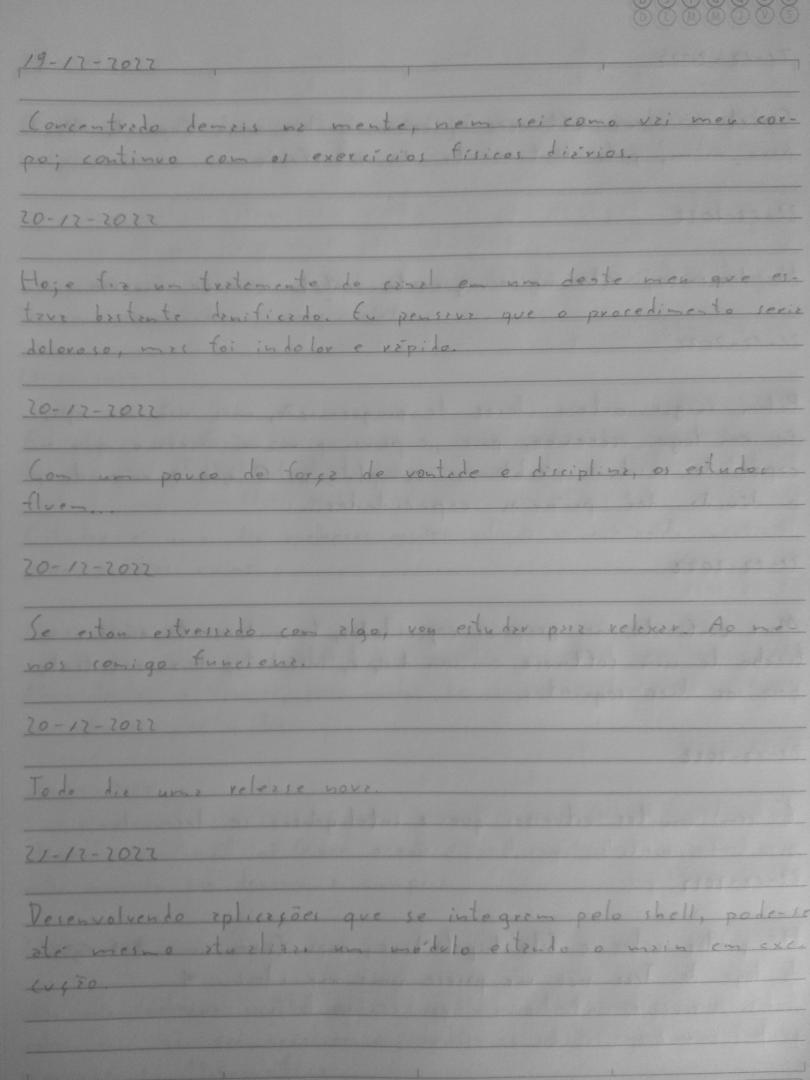 D L M M J V S
19-12-2022
Concentrado demais na mente, nem sei como vai meu cor-
po; continuo com os exercícios físicos diários.
20-12-2022
Hoje fiz um tratamento de canal em um dente meu que es-
tava bastante danificado. Eu pensava que o procedimento seria
doloroso, mas foi indolor e rápido.
20-12-2022
Com um pouco de força de vontade e disciplina, os estudos
fluem...
20-12-2022
Se estou estressado com algo, vou estudar para relaxar. Ao me-
nos comigo funciona.
20-12-2022
Todo dia uma release nova.
21-12-2022
Desenvolvendo aplicações que se integram pelo shell, pode-se
até mesmo atualizar um módulo estando o main em exe-
cução.